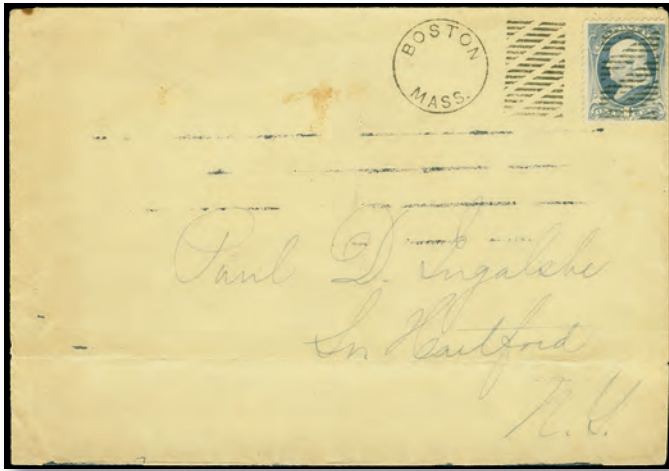 BOSTON
MASS.
Paul D. Ingalsbe
So Hartford
N.Y.